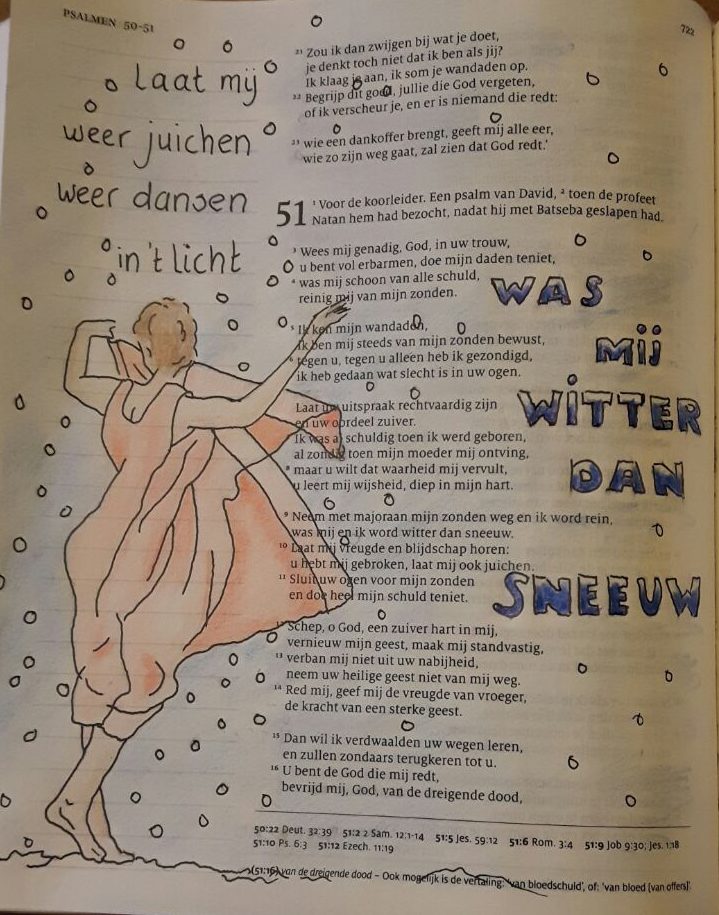 PSALMEN 50-51
722
laat mij
weer juichen
weer dansen
in 't licht
21 Zou ik dan zwijgen bij wat je doet,
je denkt toch niet dat ik ben als jij?
Ik klaag je aan, ik som je wandaden op.
22 Begrijp dit goed, jullie die God vergeten,
of ik verscheur je, en er is niemand die redt:
23 wie een dankoffer brengt, geeft mij alle eer,
wie zo zijn weg gaat, zal zien dat God redt.'
51 1 Voor de koorleider. Een psalm van David, 2 toen de profeet
Natan hem had bezocht, nadat hij met Batseba geslapen had.
3 Wees mij genadig, God, in uw trouw,
u bent vol erbarmen, doe mijn daden teniet,
4 was mij schoon van alle schuld,
reinig mij van mijn zonden.
5 Ik ken mijn wandaden,
ik ben mij steeds van mijn zonden bewust,
6 tegen u, tegen u alleen heb ik gezondigd,
ik heb gedaan wat slecht is in uw ogen.
Laat uw uitspraak rechtvaardig zijn
en uw oordeel zuiver.
7 Ik was al schuldig toen ik werd geboren,
al zondig toen mijn moeder mij ontving,
8 maar u wilt dat waarheid mij vervult,
u leert mij wijsheid, diep in mijn hart.
9 Neem met majoraan mijn zonden weg en ik word rein,
was mij en ik word witter dan sneeuw.
10 Laat mij vreugde en blijdschap horen:
u hebt mij gebroken, laat mij ook juichen.
11 Sluit uw ogen voor mijn zonden
en doe heel mijn schuld teniet.
12 Schep, o God, een zuiver hart in mij,
vernieuw mijn geest, maak mij standvastig,
13 verban mij niet uit uw nabijheid,
neem uw heilige geest niet van mij weg.
14 Red mij, geef mij de vreugde van vroeger,
de kracht van een sterke geest.
15 Dan wil ik verdwaalden uw wegen leren,
en zullen zondaars terugkeren tot u.
16 U bent de God die mij redt,
bevrijd mij, God, van de dreigende dood,
WAS
MIJ
WITTER
DAN
SNEEUW
50:22 Deut. 32:39 51:2 2 Sam. 12:1-14 51:5 Jes. 59:12 51:6 Rom. 3:4 51:9 Job 9:30; Jes. 1:18
51:10 Ps. 6:3 51:12 Ezech. 11:19
(51:16) van de dreigende dood – Ook mogelijk is de vertaling: 'van bloedschuld', of: 'van bloed [van offers]'.